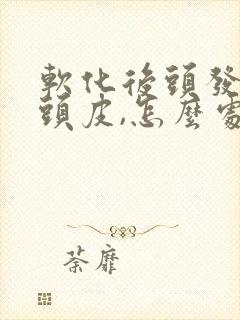 軟化後頭發
頭皮,怎麼處
荼靡